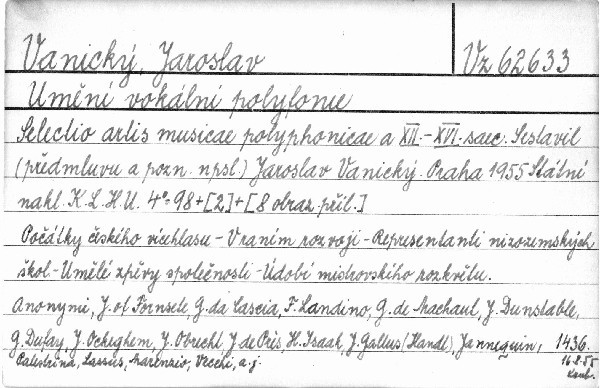 Vanický, Jaroslav Vz 62633
Umění vokální polyfonie
Selectio artis musicae polyphonicae a XII.-XVI. saec. Sestavil
(předmluvu a pozn. npsl.) Jaroslav Vanický. Praha 1955 Státní
nakl. K.L.H.U. 4° 98+[2]+[8 obraz. příl.]
Počátky českého vícehlasu - V raném rozvoji - Representanti nizozemských
škol - Umělé zpěvy společnosti - Údobí mistrovského rozkvětu.
Anonymi, J. of Fornsete, G. da Cascia, F. Landino, G. de Machaut, J. Dunstable,
G. Dufay, J. Ockeghem, J. Obrecht, J. de Prés, H. Isaak, J. Gallus (Handl), Jannequin, 1436.
Palestrina, Lassus, Marenzio, Vecchi, a.j. 16.8.55